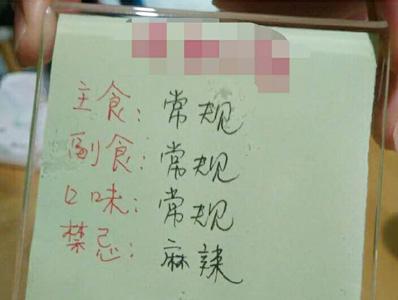 主食：常规
副食：常规
口味：常规
禁忌：麻辣